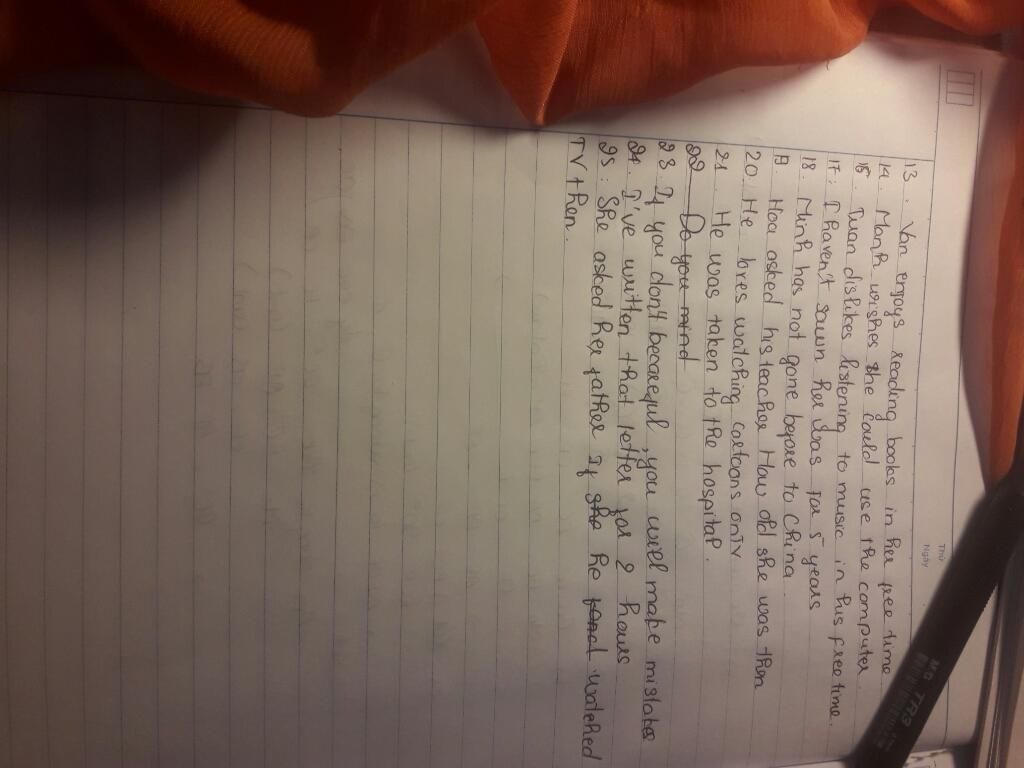 Thứ
Ngày
13. Van enjoys reading books in her free time
14. Manh wishes she could use the computer
15. Tuan dislikes listening to music in his free time.
17: I haven't sawn her was for 5 years
18. Minh has not gone before to China
19. Hoa asked his teacher How old she was then
20. He loves watching cartoons only
21. He was taken to the hospital.
22 Do you mind
23. If you don't becareful, you will make mistake
24. I've written that letter for 2 hours
25: She asked her father if she he watched
TV then.
MG TR3